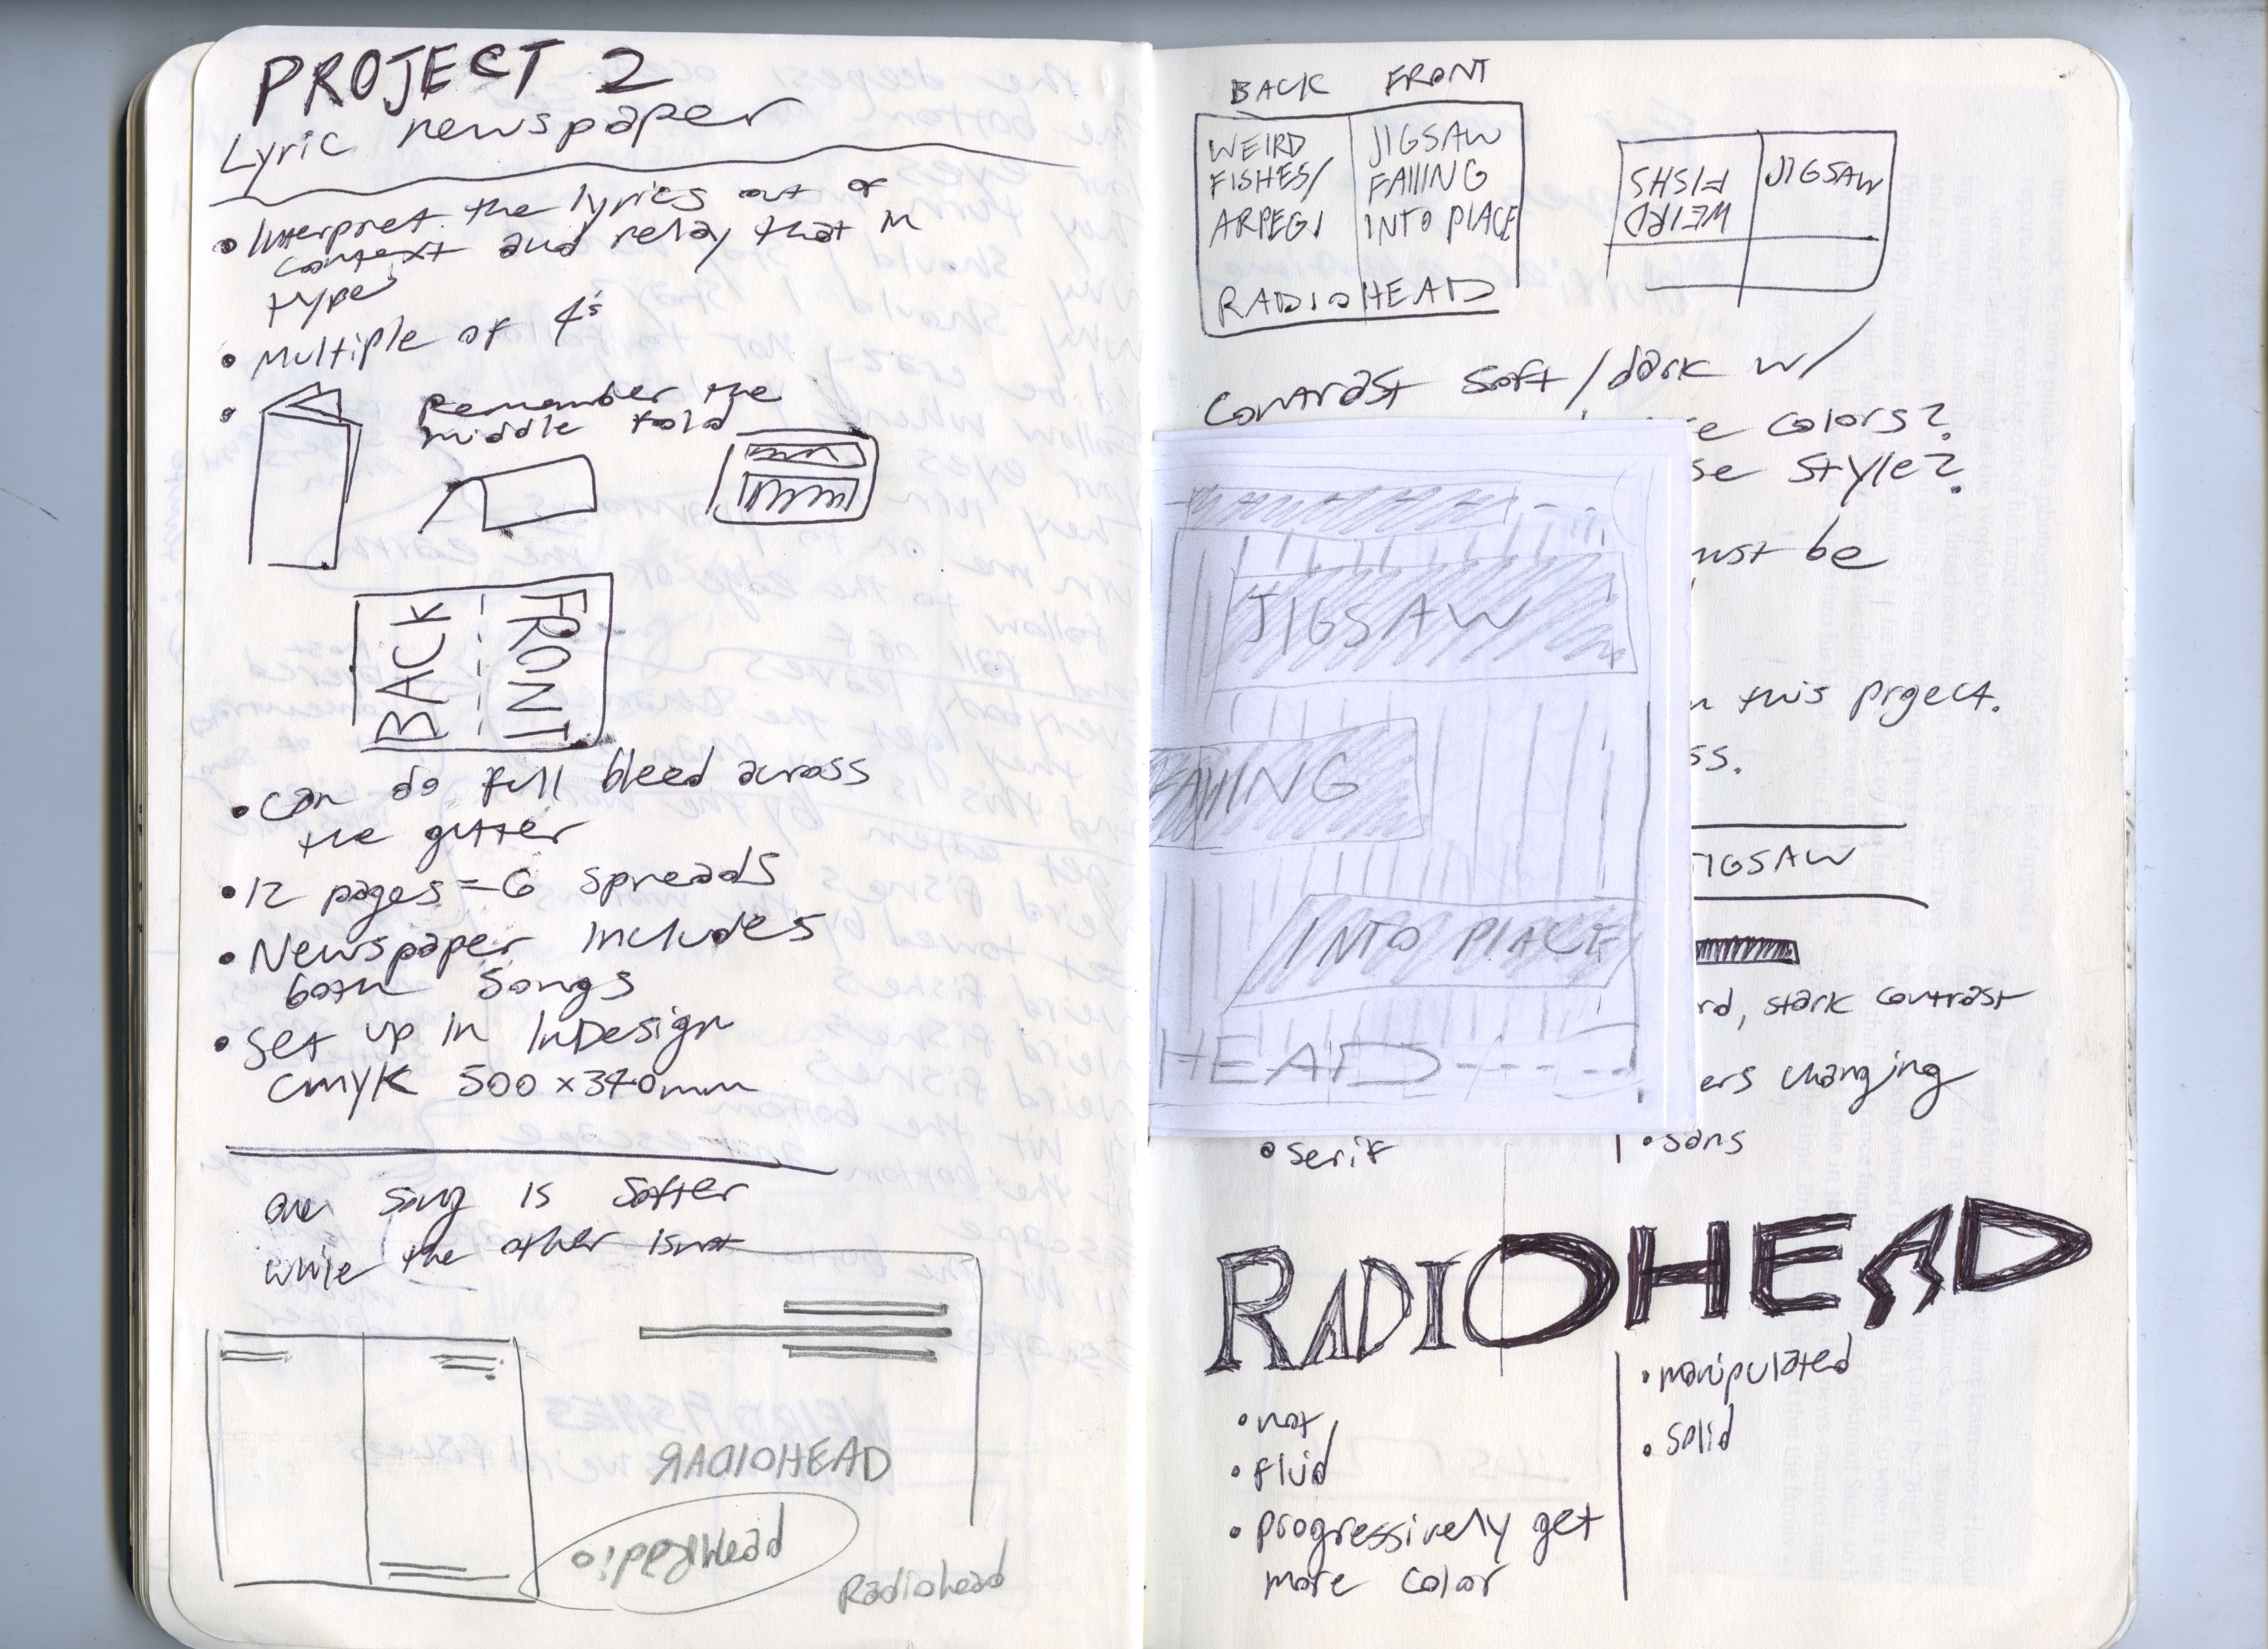 PROJECT 2
Lyric newspaper
• Interpret the lyrics out of
context and relay that in
type
• Multiple of 4's
•
Remember the
middle fold
BACK
FRONT
• can do full bleed across
the gutter
• 12 pages = 6 spreads
• Newspaper includes
both songs
• set up in InDesign
CMYK 500 x 340mm
one song is softer
while the other isnt
RADIOHEAD
Radiohead
BACK FRONT
WEIRD
FISHES/
ARPEGI
JIGSAW
FAllING
INTO PlACE
RADIOHEAD
WEIRD
FISHS
JIGSAW
Contrast soft/dark w/
re colors?
se style?
ust be
JIGSAW
FAllING
INTO PlACE
HEAD
this project.
ss.
JIGSAW
rd, stark contrast
ers changing
• serif
• sans
RADIOHEAD
• not
• fluid
• progressively get
more color
• manipulated
• solid